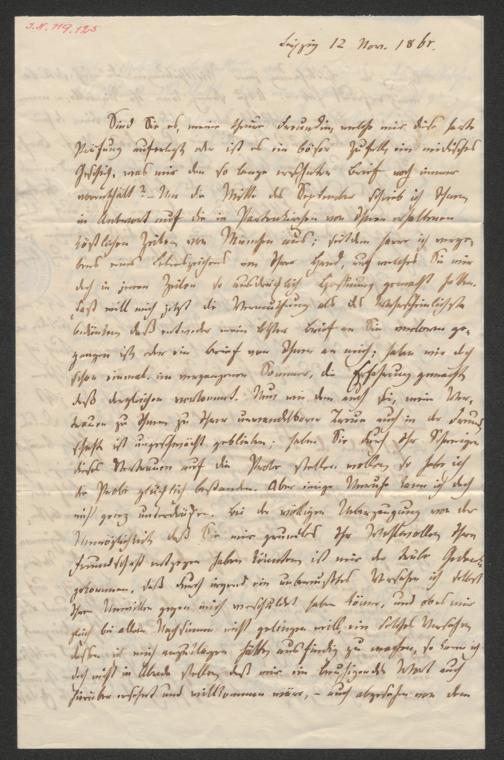 I.N. 119.125
Leipzig 12 Nov. 1861.
Sind Sie es, meine theure Freundin, welche mir diese harte
Prüfung auferlegt oder ist es ein böser Zufall, ein neidisches
Geschick, was mir den so lange ersehnten Brief noch immer
vorenthält? – Um die Mitte des September schrieb ich Ihnen
in Antwort auf die in Partenkirchen von Ihnen erhaltenen
köstlichen Zeilen von München aus; seitdem harre ich verge-
bens eines Lebenszeichens von Ihrer Hand, auf welches Sie mir
doch in jenen Zeilen so ausdrücklich Hoffnung gemacht hatten.
Fast will mich jetzt die Vermuthung als das Wahrscheinlichste
bedünken daß entweder mein letzter Brief an Sie verloren ge-
gangen ist oder ein Brief von Ihnen an mich; haben wir doch
schon einmal, im vergangenen Sommer, die Erfahrung gemacht
daß dergleichen vorkommt. Nun wie dem auch sei, mein Ver-
trauen zu Ihnen zu Ihrer unwandelbaren Treue auch in der Freund-
schaft ist ungeschwächt geblieben; haben Sie durch Ihr Schweigen
dieses Vertrauen auf die Probe stellen wollen so habe ich
die Probe glücklich bestanden. Aber einige Unruhe kann ich doch
nicht ganz unterdrücken. Bei der völligen Überzeugung von der
Unmöglichkeit daß Sie mir grundlos Ihr Wohlwollen Ihre
Freundschaft entzogen haben könnten ist mir der trübe Gedanke
gekommen, daß durch irgend ein unbewußtes Versehen ich selbst
Ihren Unwillen gegen mich verschuldet haben könne, und obschon mir
gleich bei allem Nachsinnen nicht gelingen will, ein solches Versehen
dessen ich mich anzuklagen hätte ausfindig zu machen, so kann ich
doch nicht in Abrede stellen daß mir ein beruhigendes Wort auch
hierüber erwünscht und willkommen wäre, – auch abgesehen von dem